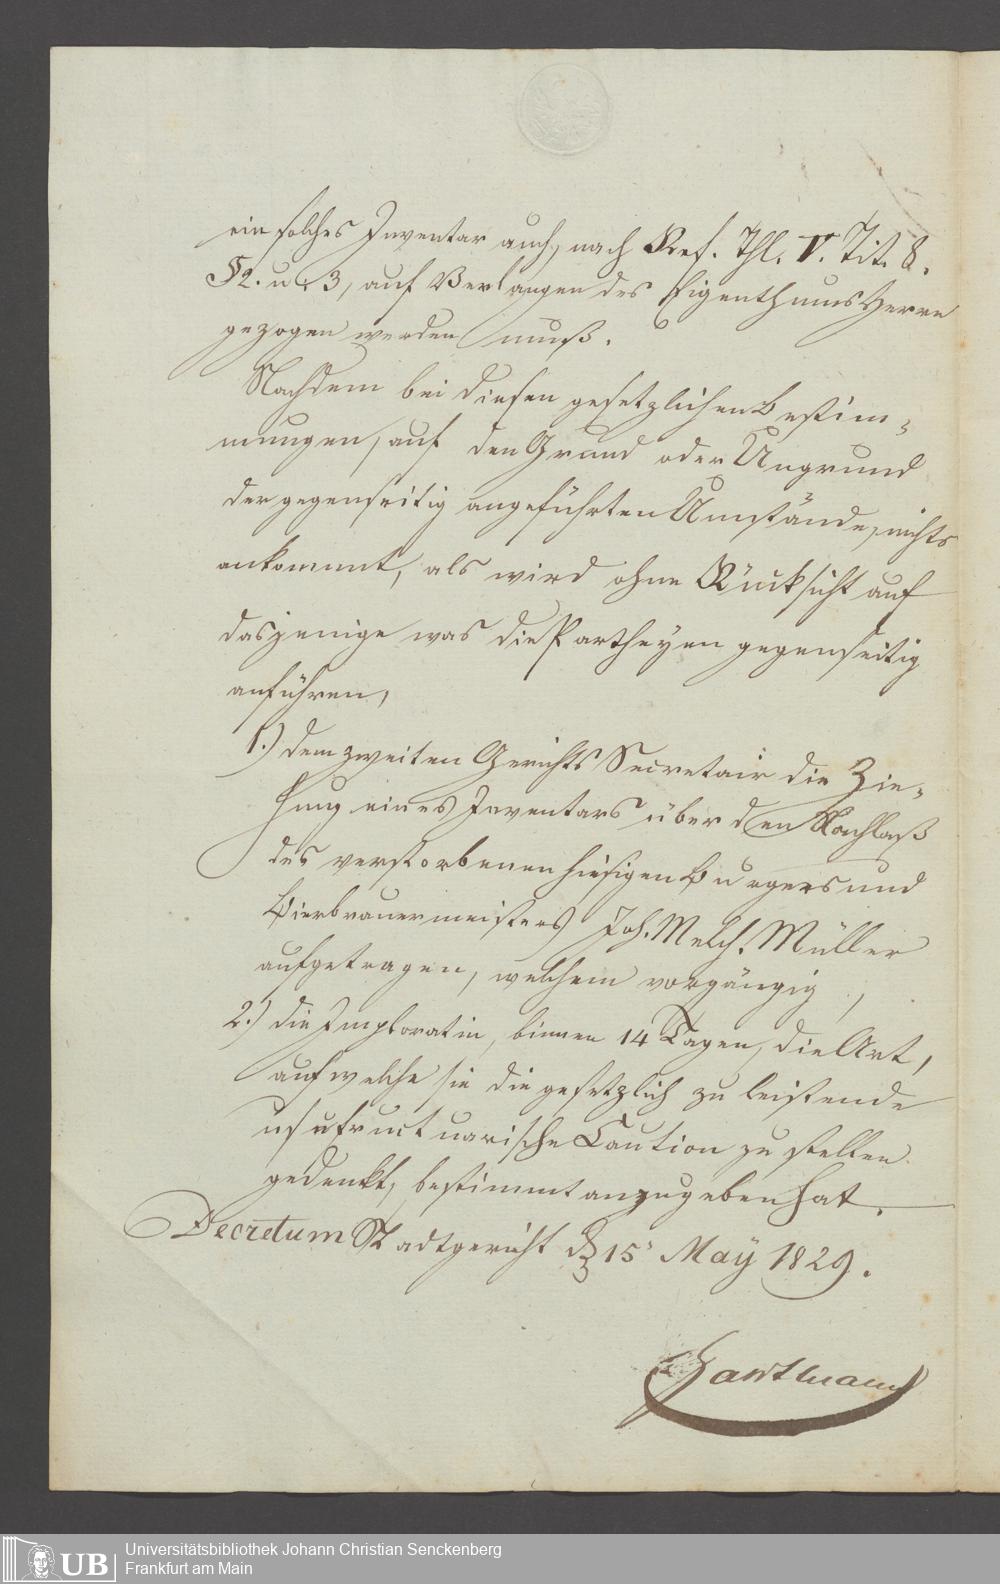 ein solches Inventar auch, nach Ref. Thl. V. Tit. 8.
§2. u. 3, auf Verlangen des Eigenthums Herrn
gezogen werden muß.
Nachdem bei diesen gesetzlichen Bestim„
mungen, auf den Grund oder Ungrund
der gegenseitig angeführten Umstände, nichts
ankommt, als wird ohne Rücksicht auf
dasjenige was die Partheyen gegenseitig
anführen,
1.) dem zweiten Gerichts Secretair die Zie„
hung eines Inventars über den Nachlaß
des verstorbenen hiesigen Burgers und
Bierbrauermeisters Joh. Melch. Müller
aufgetragen, welchem vorgängig,
2.) die Imploratin, binnen 14 Tagen, die Art,
auf welche sie die gesetzlich zu leistende
usufructuarische Caution zu stellen
gedenkt, bestimmt anzugeben hat.
Decretum Stadtgericht d. 15 May 1829.
Hartmann
UB Universitätsbibliothek Johann Christian Senckenberg
Frankfurt am Main